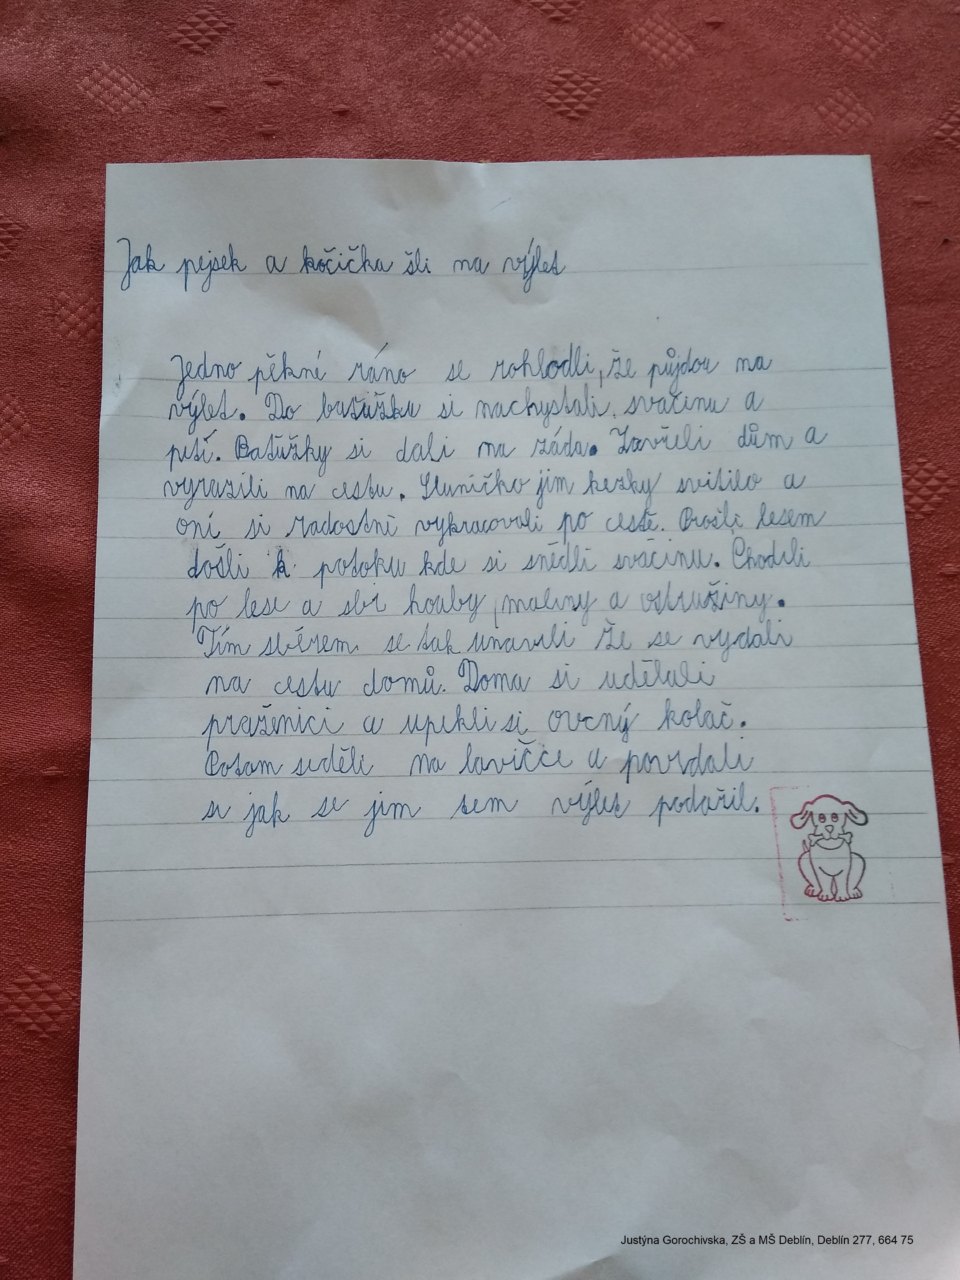 Jak pejsek a kočička šli na výlet
Jedno pěkné ráno se rohlodli, že půjdou na
výlet. Do baťůžku si nachystali, svačinu a
pití. Baťůžky si dali na záda. Zavřeli dům a
vyrazili na cestu. Sluníčko jim hezky svítilo a
oni si radostně vykracovali po cestě. Prošli lesem
došli k potoku kde si snědli svačinu. Chodili
po lese a sbr houby, maliny a ostružiny.
Tím sběrem se tak unavili že se vydali
na cestu domů. Doma si udělali
praženici a upekli si ovcný koláč.
Potom seděli na lavičce a povídali
si jak se jim tem výlet podařil.
Justýna Gorochivska, ZŠ a MŠ Deblín, Deblín 277, 664 75